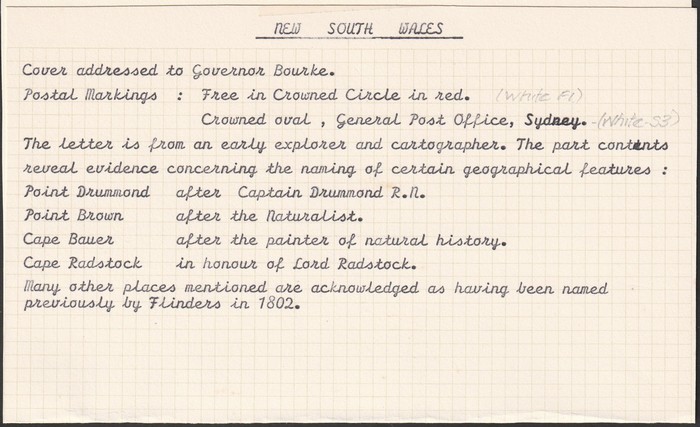 NEW SOUTH WALES
Cover addressed to Governor Bourke.
Postal Markings : Free in Crowned Circle in red. (White F1)
Crowned oval , General Post Office, Sydney. - (White S3)
The letter is from an early explorer and cartographer. The part contents
reveal evidence concerning the naming of certain geographical features :
Point Drummond after Captain Drummond R.N.
Point Brown after the Naturalist.
Cape Bauer after the painter of natural history.
Cape Radstock in honour of Lord Radstock.
Many other places mentioned are acknowledged as having been named
previously by Flinders in 1802.